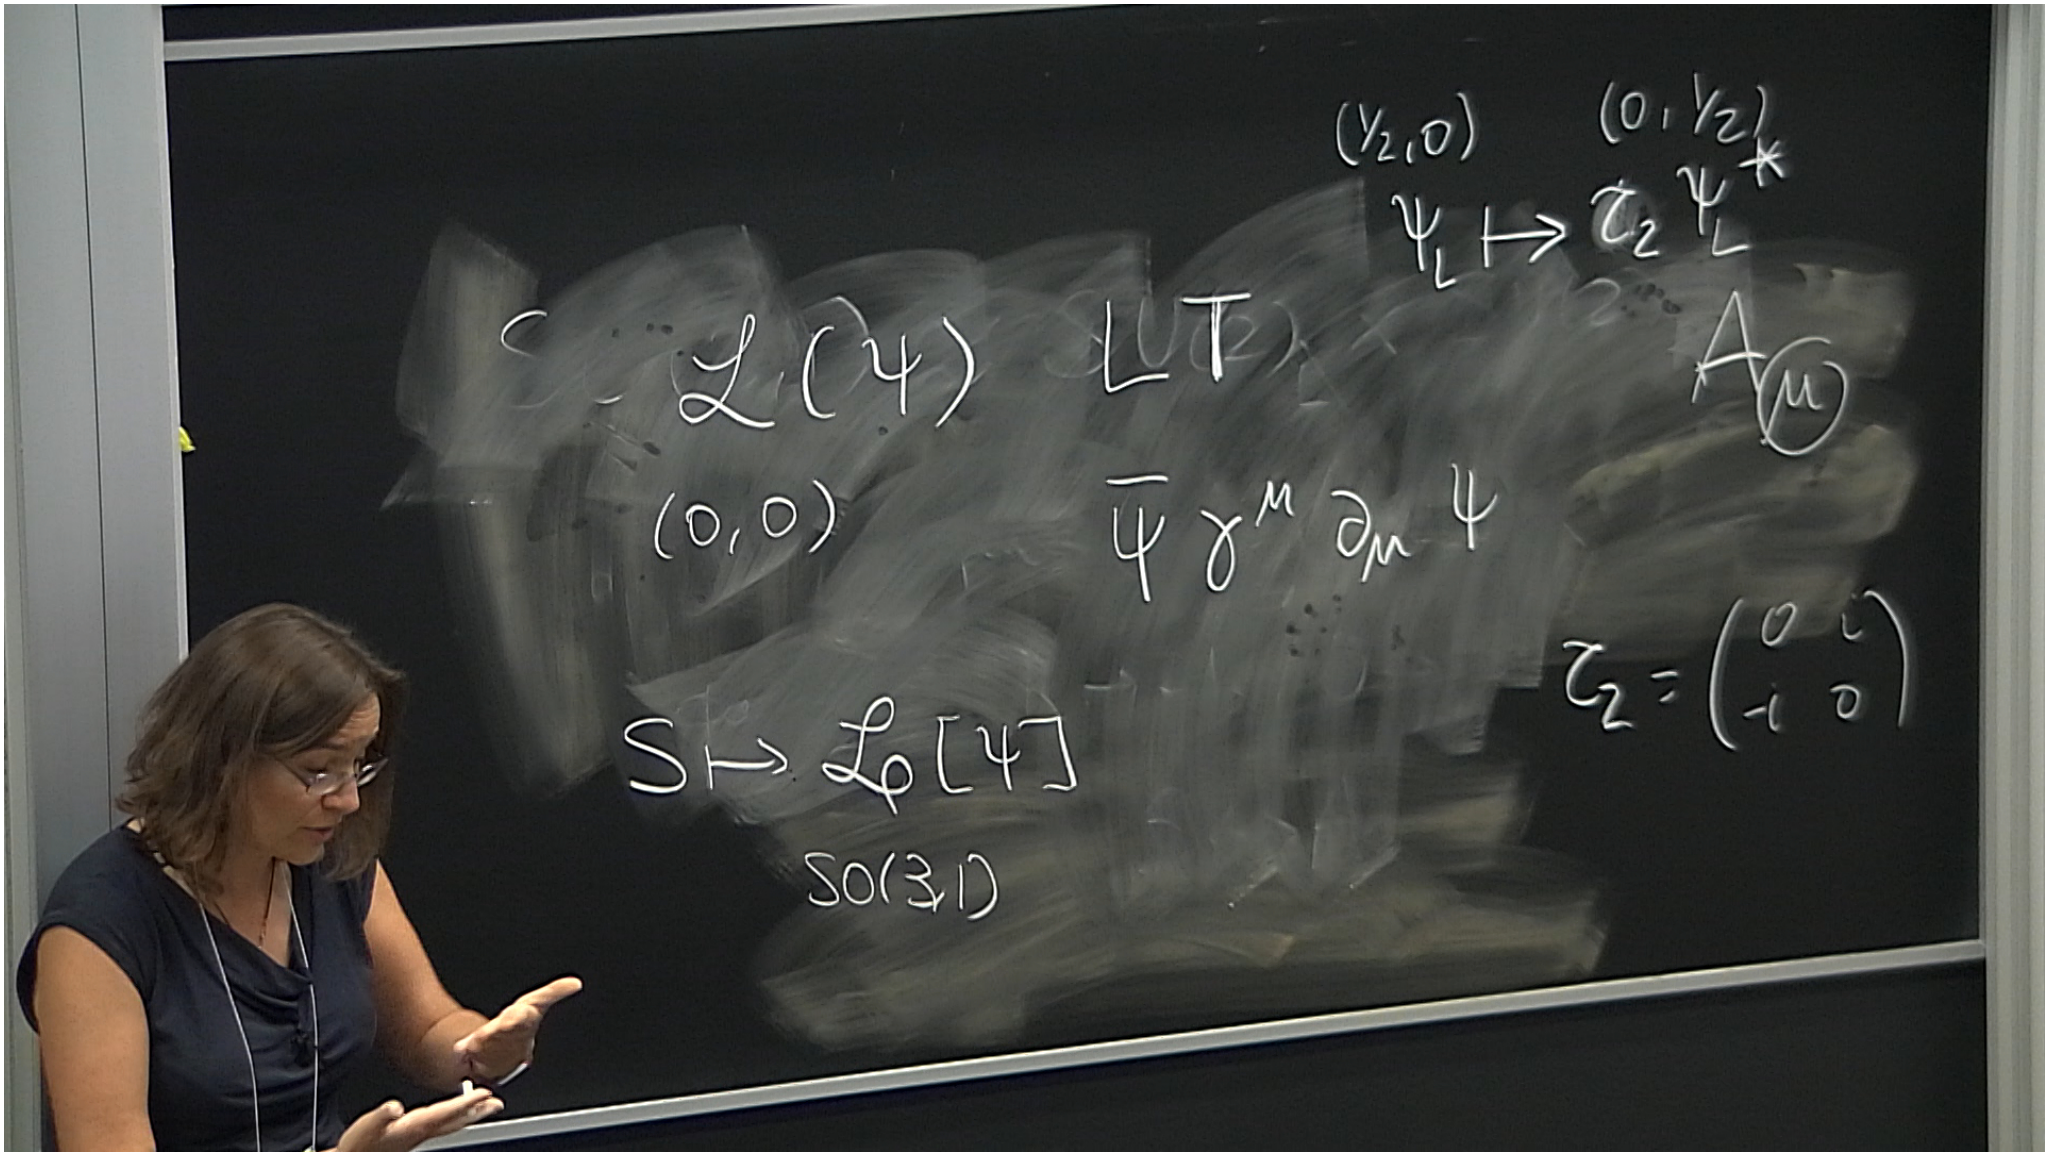 (1/2,0) (0,1/2)
ψ_L ↦ τ₂ ψ_L*
ℒ(ψ) LT A_μ
(0,0) ψ̄ γ^μ ∂_μ ψ
τ₂ = (0 i
-i 0)
S ↦ ℒ_φ[ψ]
SO(3,1)